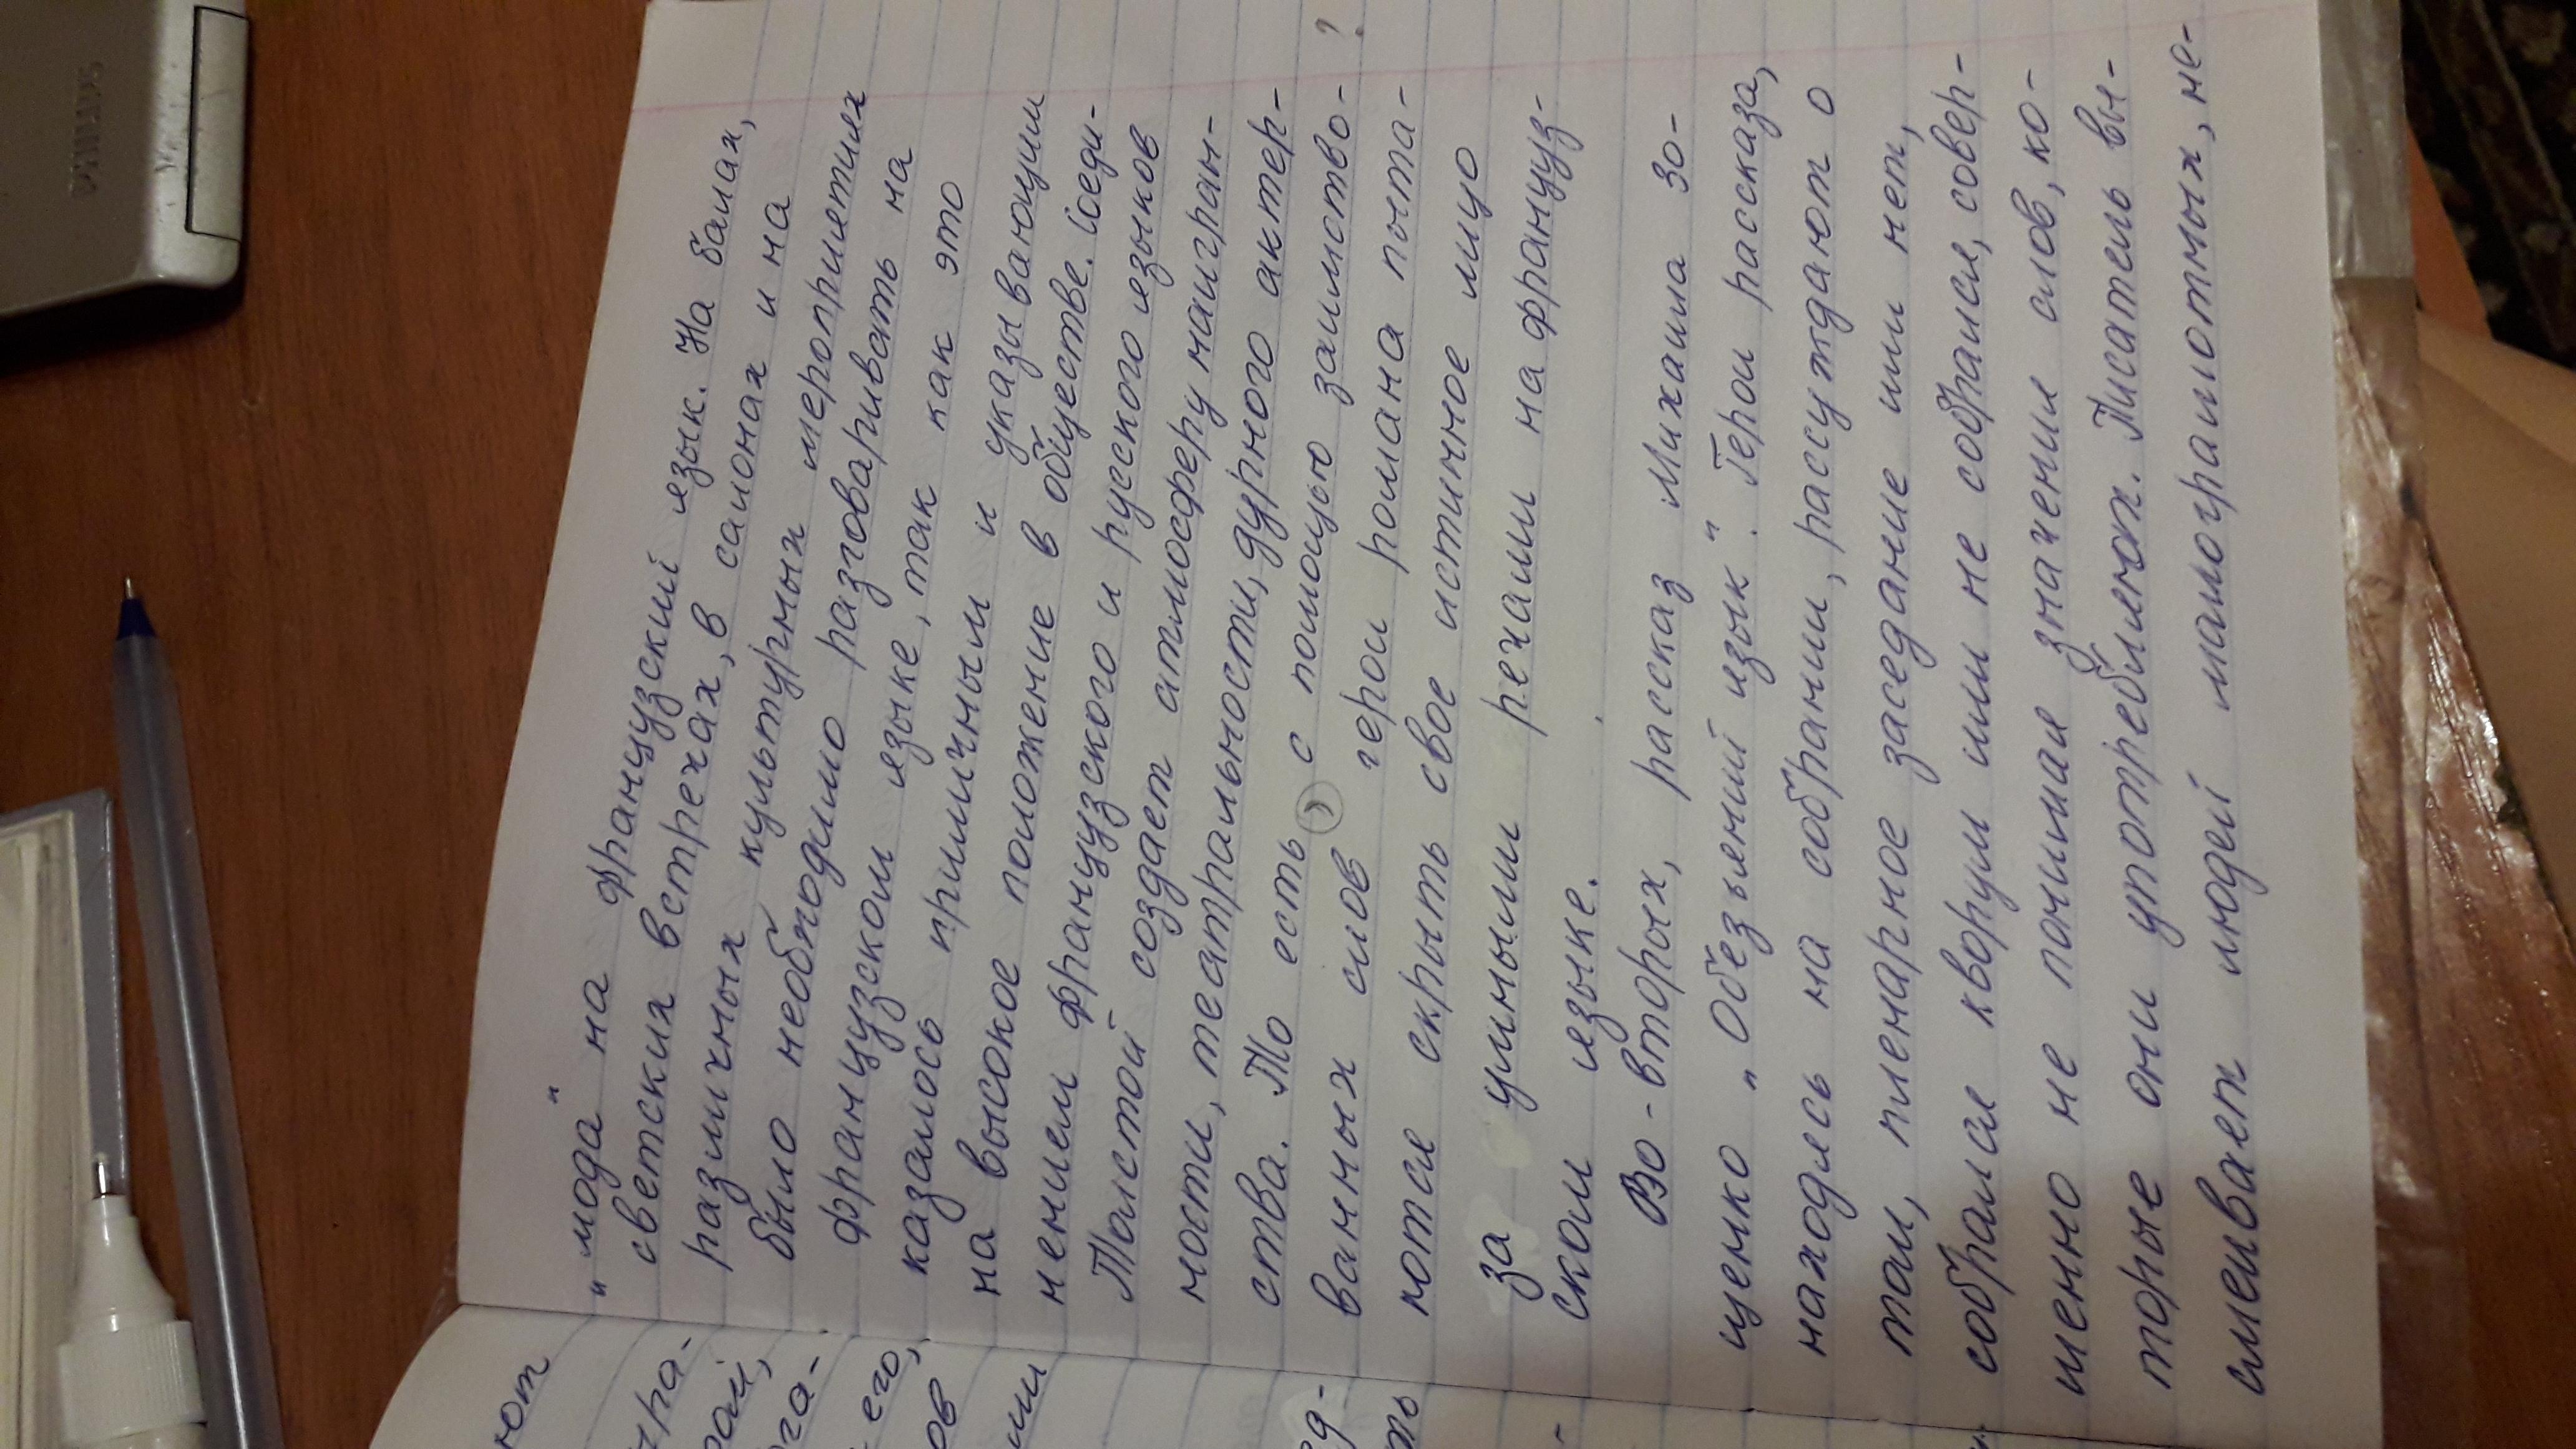 "мода" на французский язык. На балах,
светских встречах, в салонах и на
различных культурных мероприятиях
было необходимо разговаривать на
французском языке, так как это
казалось приличным и указывающим
на высокое положение в обществе. Соеди-
нением французского и русского языков
Толстой создает атмосферу наигран-
ности, театральности, дурного актер-
ства. То есть, с помощью заимство- ?
ванных слов герои романа пыта-
ются скрыть свое истинное лицо
за умными речами на француз-
ском языке.
Во-вторых, рассказ Михаила Зо-
щенко "Обезьяний язык". Герои рассказа,
находясь на собрании, рассуждают о
том, пленарное заседание или нет,
собрался кворум или не собрался, совер-
шенно не понимая значения слов, ко-
торые они употребляют. Писатель вы-
смеивает людей малограмотных, не-
ют
его,
ов
ть
PHILIPS